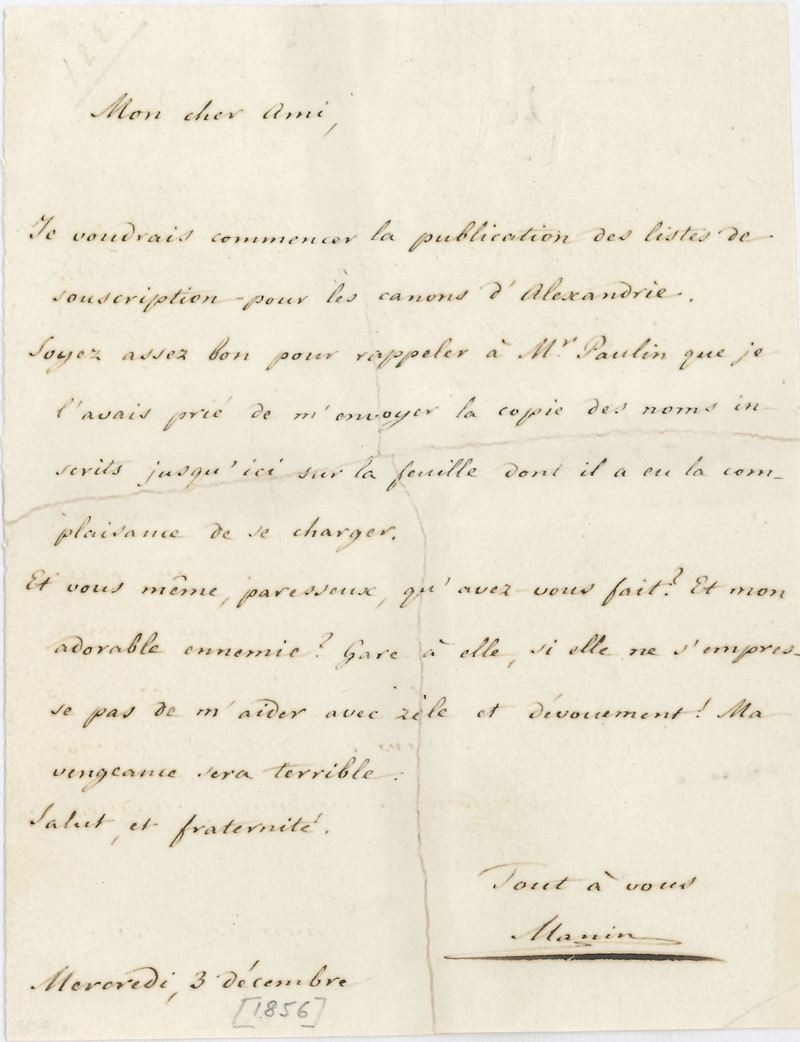 122
Mon cher Ami,
Je voudrais commencer la publication des listes de
souscription pour les canons d'Alexandrie.
Soyez assez bon pour rappeler à Mr Paulin que je
l'avais prié de m'envoyer la copie des noms in-
scrits jusqu'ici sur la feuille dont il a eu la com-
plaisance de se charger.
Et vous même, paresseux, qu'avez vous fait? Et mon
adorable ennemie? Gare à elle, si elle ne s'empres-
se pas de m'aider avec zèle et dévouement! Ma
vengeance sera terrible.
Salut, et fraternité.
Tout à vous
Manin
Mercredi, 3 décembre
[1856]